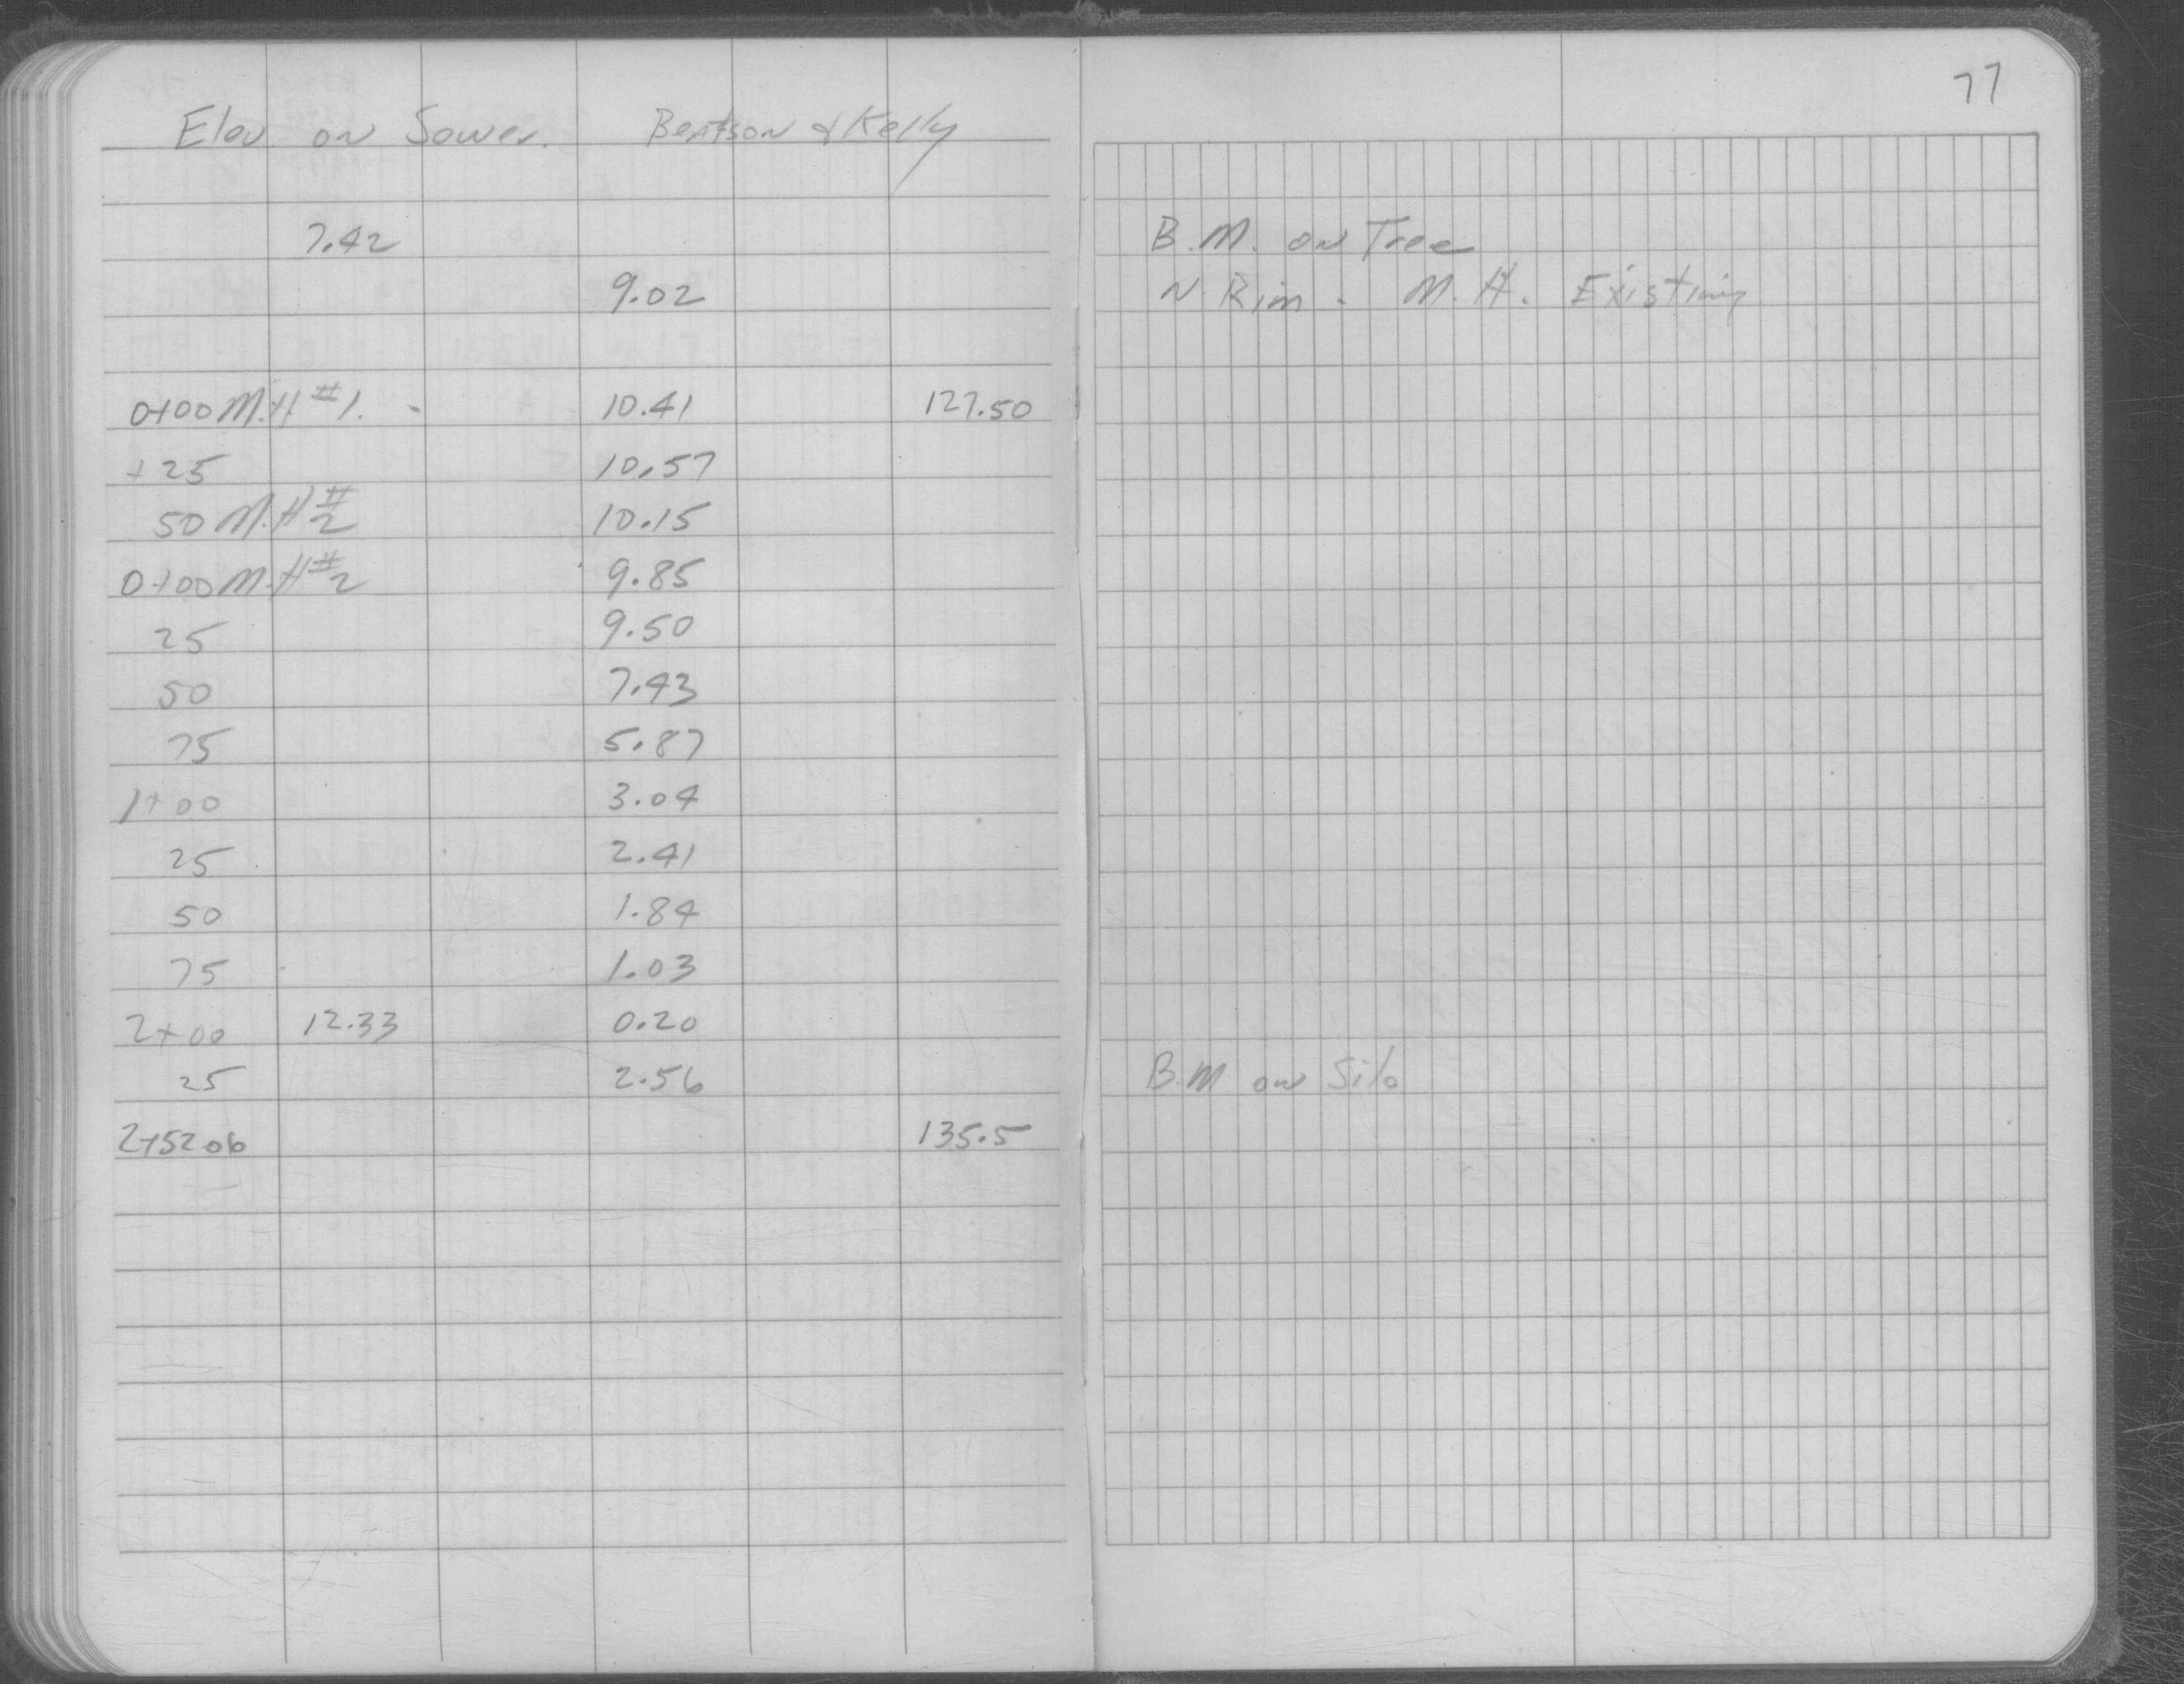 77
Elev on Sower. Bentson & Kelly
7.42 B.M. on Tree
9.02 N Rim - M.H. Existing
0+00 M.H #1. - 10.41 127.50
+25 10.57
50 M.H #2 10.15
0+00 M.H #2 9.85
25 9.50
50 7.43
75 5.87
1+00 3.04
25 2.41
50 1.84
75 1.03
2+00 12.33 0.20
25 2.56 B.M on Silo
2+52 06 135.5